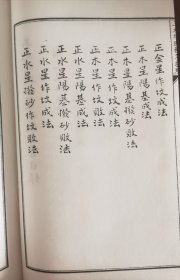 正金星作坟成法
正木星陽基成法
正木星陽基撥砂敗法
正木星作坟成法
正木星作坟敗法
正水星陽基成法
正水星陽基撥砂敗法
正水星作坟成法
正水星撥砂作坟敗法